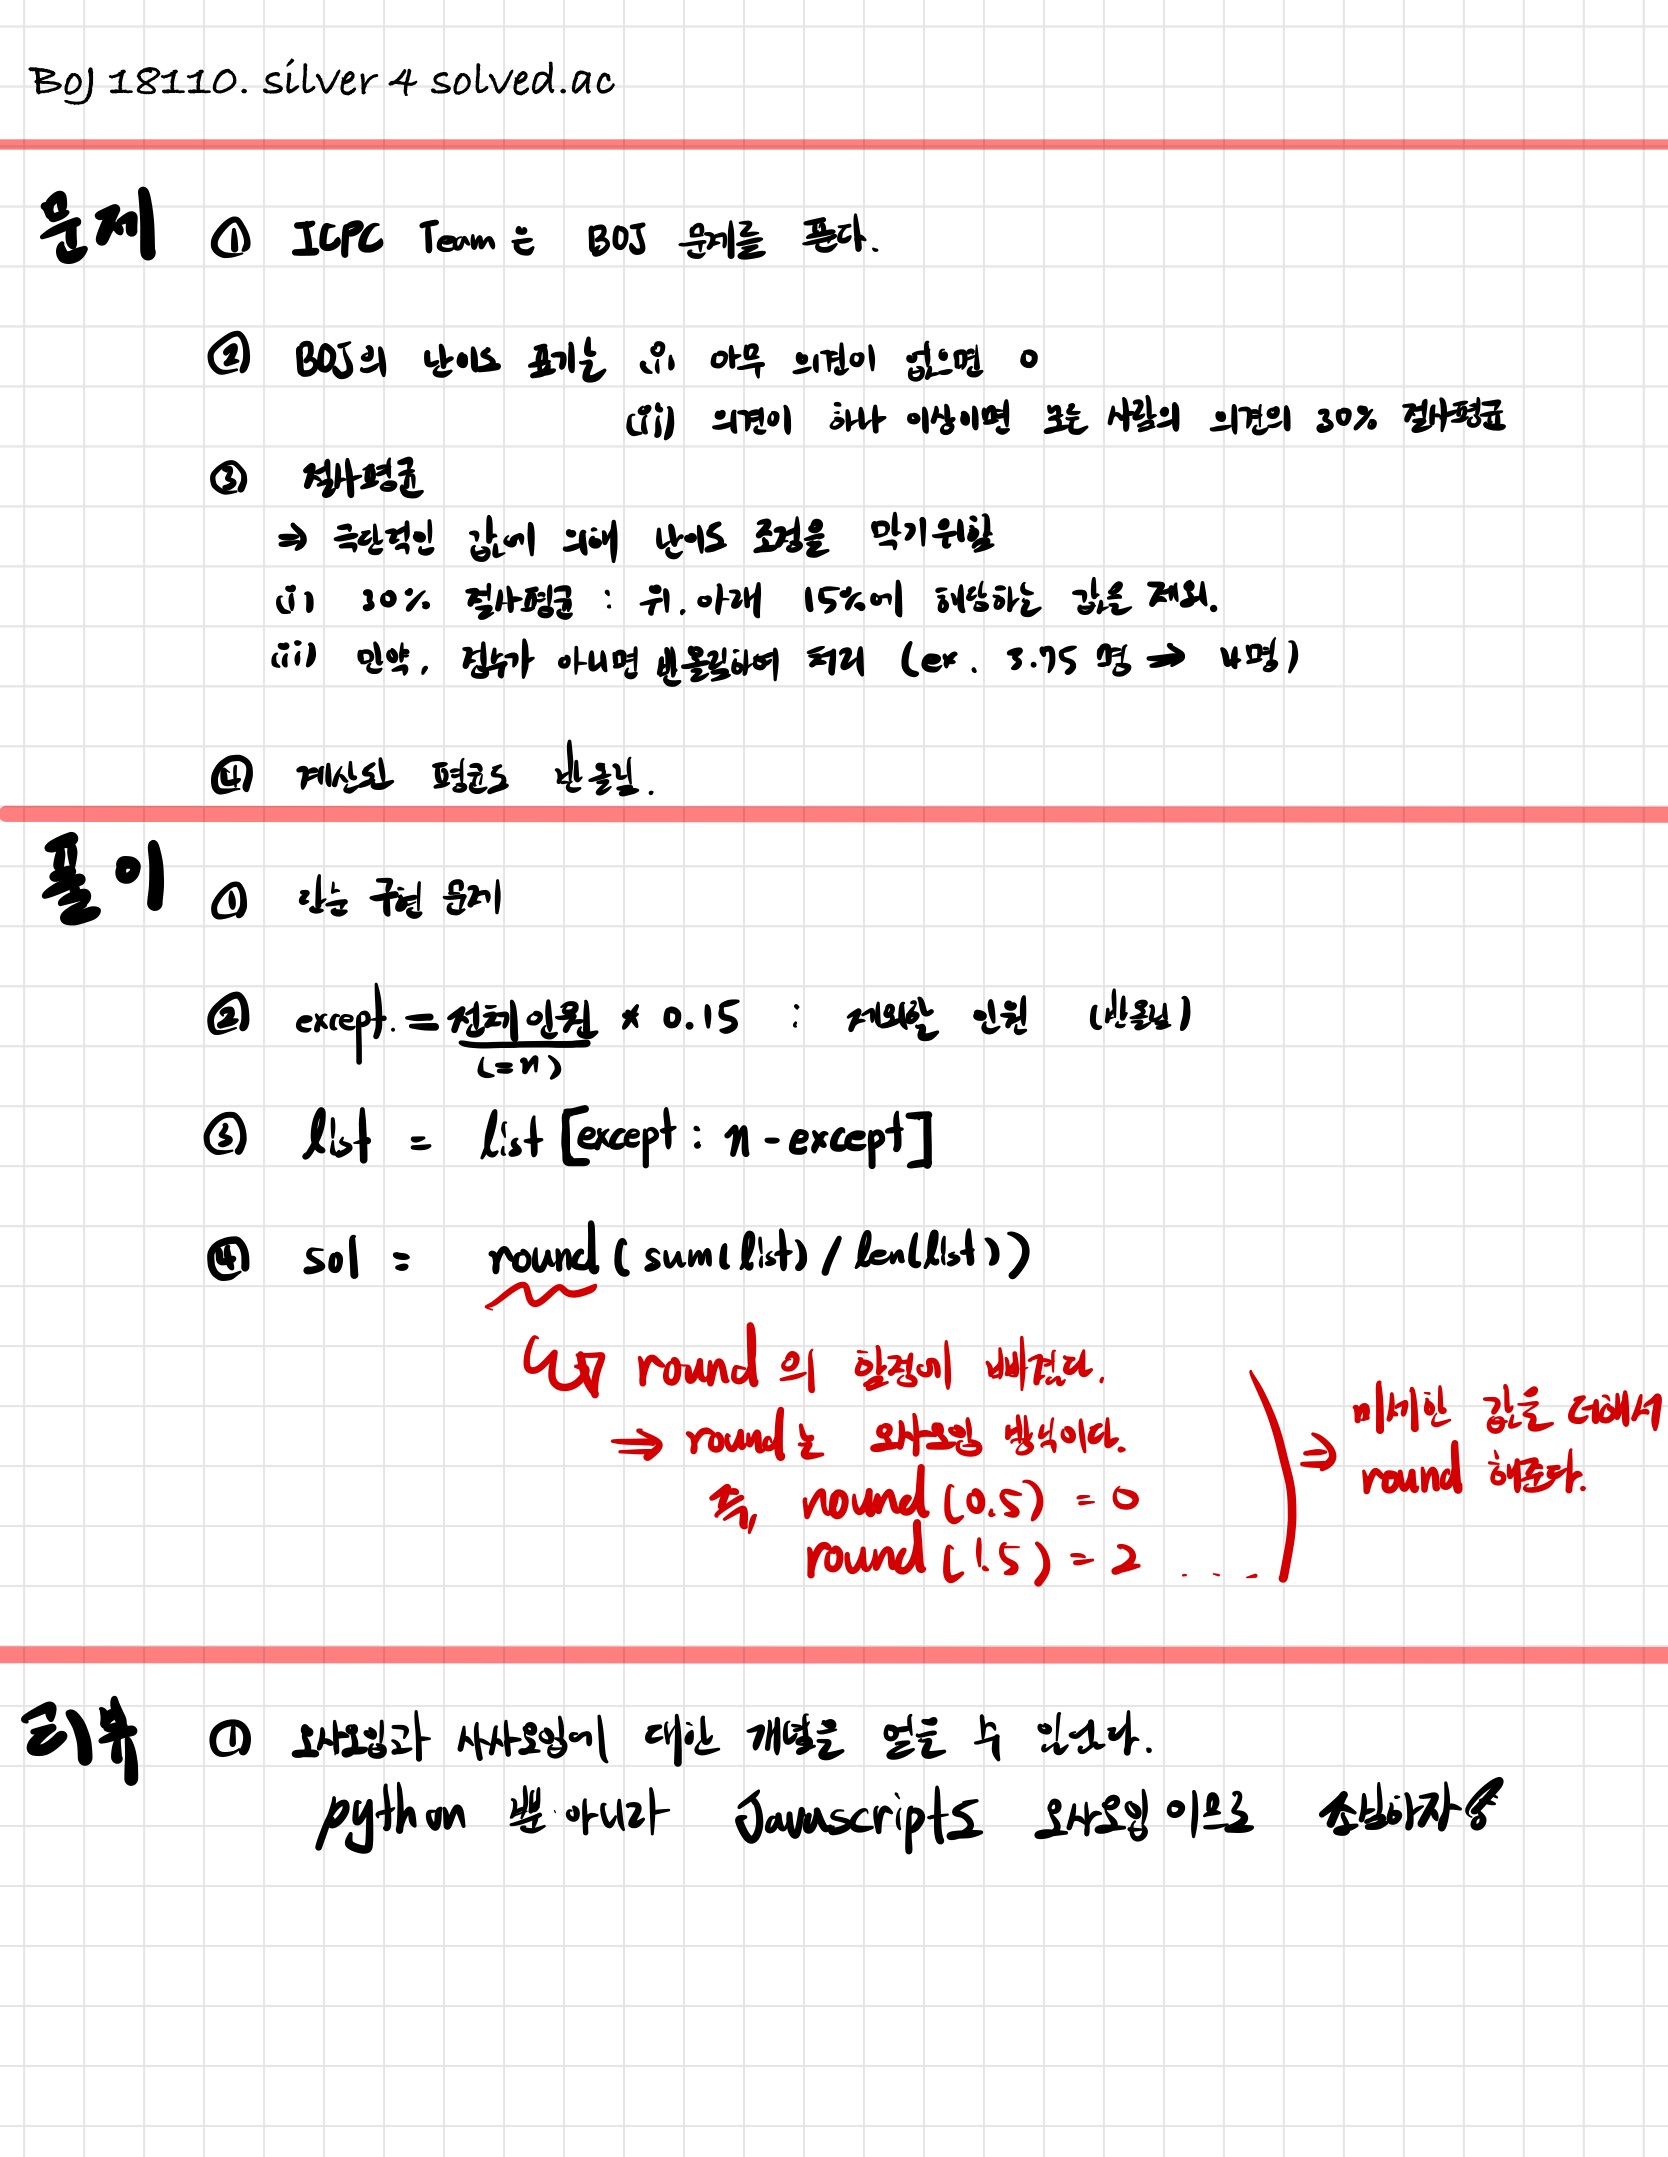 BOJ 18110. silver 4 solved.ac
문제 ① ICPC Team은 BOJ 문제를 푼다.
② BOJ의 난이도 표기는 (i) 아무 의견이 없으면 0
(ii) 의견이 하나 이상이면 모든 사람의 의견의 30% 절사평균
③ 절사평균
⇒ 극단적인 값에 의해 난이도 조정을 막기위함
(i) 30% 절사평균 : 위, 아래 15%에 해당하는 값을 제외.
(ii) 만약, 정수가 아니면 반올림하여 처리 (ex. 3.75 명 ⇒ 4명)
④ 계산된 평균도 반올림.
풀이 ① 단순 구현 문제
② except. = 전체인원 * 0.15 : 제외할 인원 (반올림)
(=n)
③ list = list [except : n - except]
④ sol = round ( sum(list) / len(list))
round 의 함정에 빠졌다.
⇒ round는 오사오입 방식이다.
즉, round (0.5) = 0
round (1.5) = 2 ....
⇒ 미세한 값을 더해서
round 해준다.
리뷰 ① 오사오입과 사사오입에 대한 개념을 얻을 수 있었다.
python 뿐 아니라 Javascript도 오사오입 이므로 조심하자